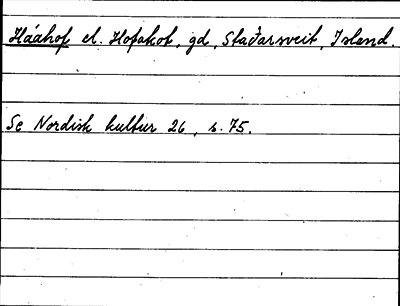 Háahof el. Hofakot, gd, Staðarsveit, Island.
Se Nordisk kultur 26, s. 75.